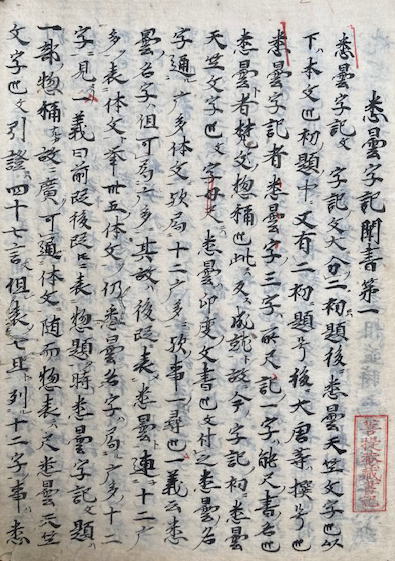 悉曇字記聞書第一
悉曇字記文 字記文大分二初題後悉曇天竺文字也以
下本文也初題中又有二初題号後大唐等撰号也
悉曇字記者悉曇字三字所尺記一字能尺書名也
悉曇者梵文惣桶也此云成就故今字記初悉曇
天竺文字也文字母文悉曇印度文書也文付之悉曇名
字通广多体文欤局十二广多欤事一尋也一義云悉
曇名字但可局广多其故後段表悉曇連十二广
多表体文牟卅五体文仍悉曇名字局广多十二
字見一義曰前段後段表惣題時悉曇字記文題
一部惣桶故廣可通体文随而惣表尺悉曇天竺
文字也文引證四十七言但表七且列十二字事悉